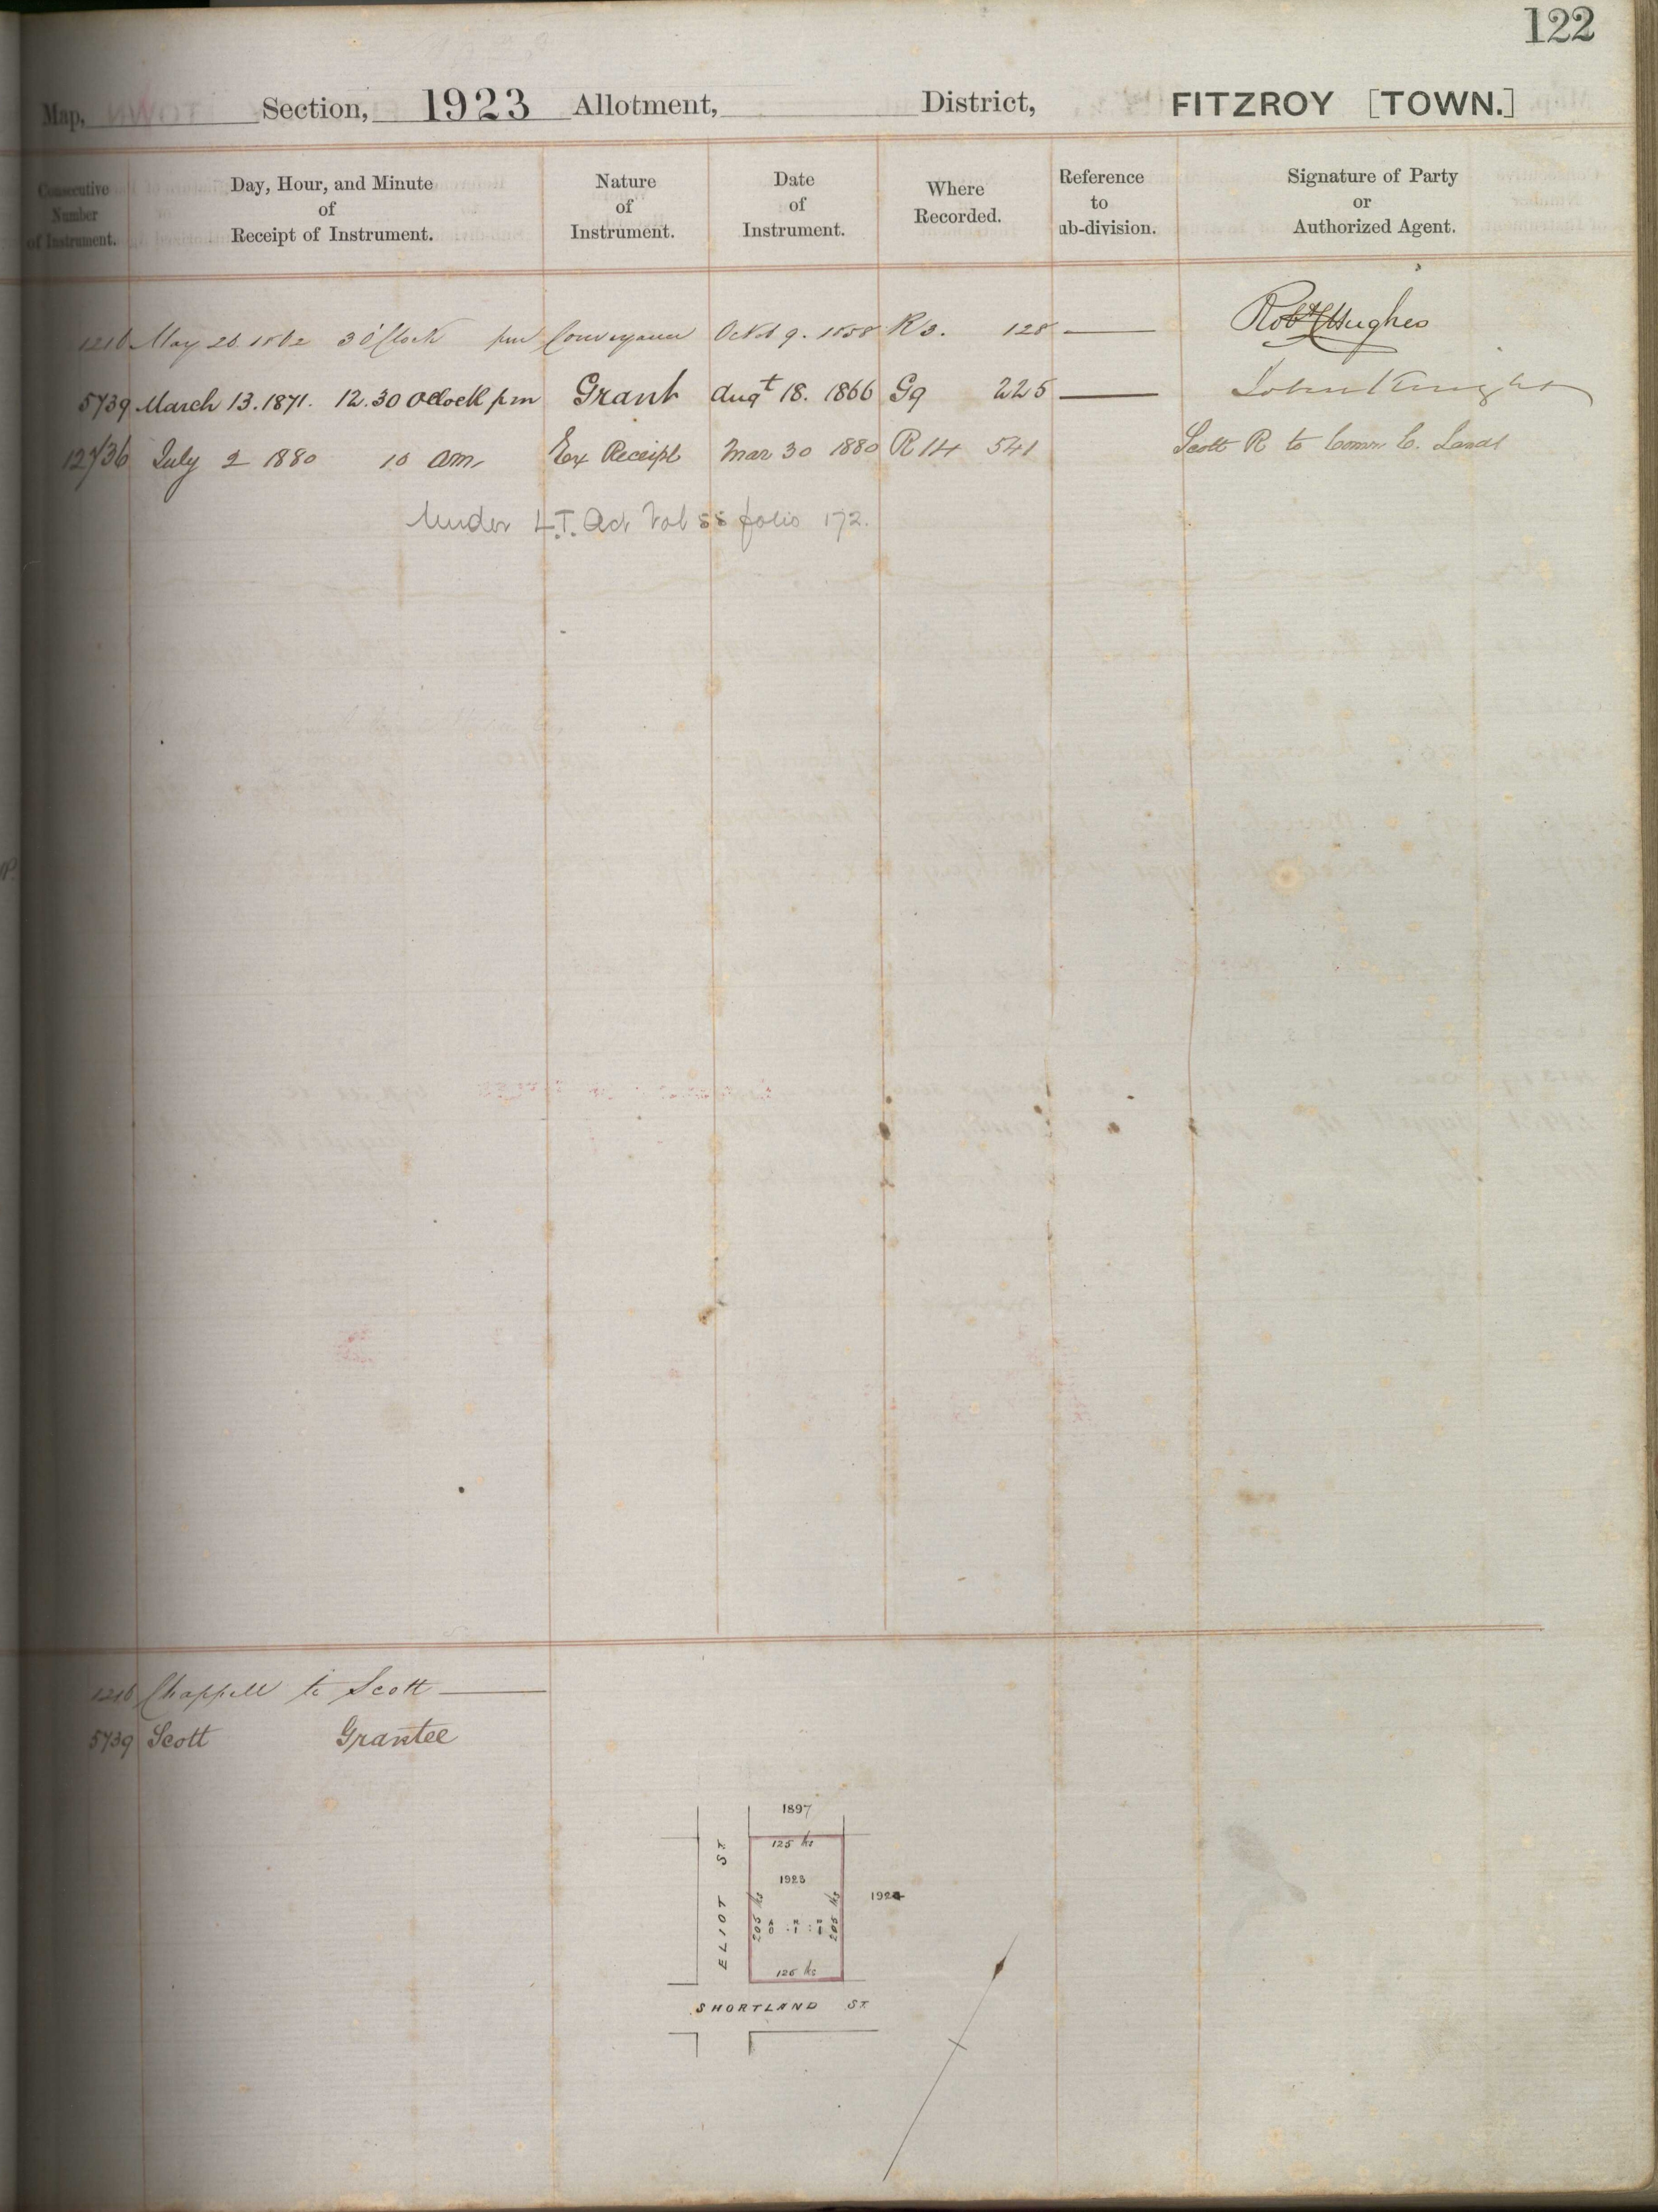 122
Map, Section, 1923 Allotment, District, FITZROY [TOWN.]
Consecutive Number of Instrument.
Day, Hour, and Minute of Receipt of Instrument.
Nature of Instrument.
Date of Instrument.
Where Recorded.
Reference to ub-division.
Signature of Party or Authorized Agent.
1216 May 28. 1862 3 O'Clock pm Conveyance Octob 9. 1858 R3. 128 — Robt Hughes
5739 March 13. 1871. 12.30 Oclock pm Grant Augt 18. 1866 G9 225 — John Knight
12736 July 2 1880 10 am. Ex Receipt Mar 30 1880 R14 541 Scott R to Comr. C. Lands
Under L.T. Act Vol 55 folio 172.
1216 Chappell to Scott —
5739 Scott Grantee
1897
125 lks
1923
205 lks
205 lks
1924
125 lks
ELIOT ST.
SHORTLAND ST.